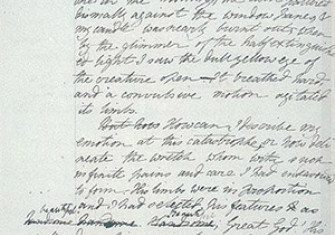 dismally against the window panes &
my candle was nearly burnt out, when
by the glimmer of the half extinguish
ed light I saw the dull yellow eye of
the creature open — It breathed hard,
and a convulsive motion agitated
its limbs.
But how How can I describe my
emotion at this catastrophe or how deli
neate the wretch whom with such
infinite pains and care I had endeavoured
to form. His limbs were in proportion
and I had selected his features as
beautiful
handsome Handsome. Great God! his